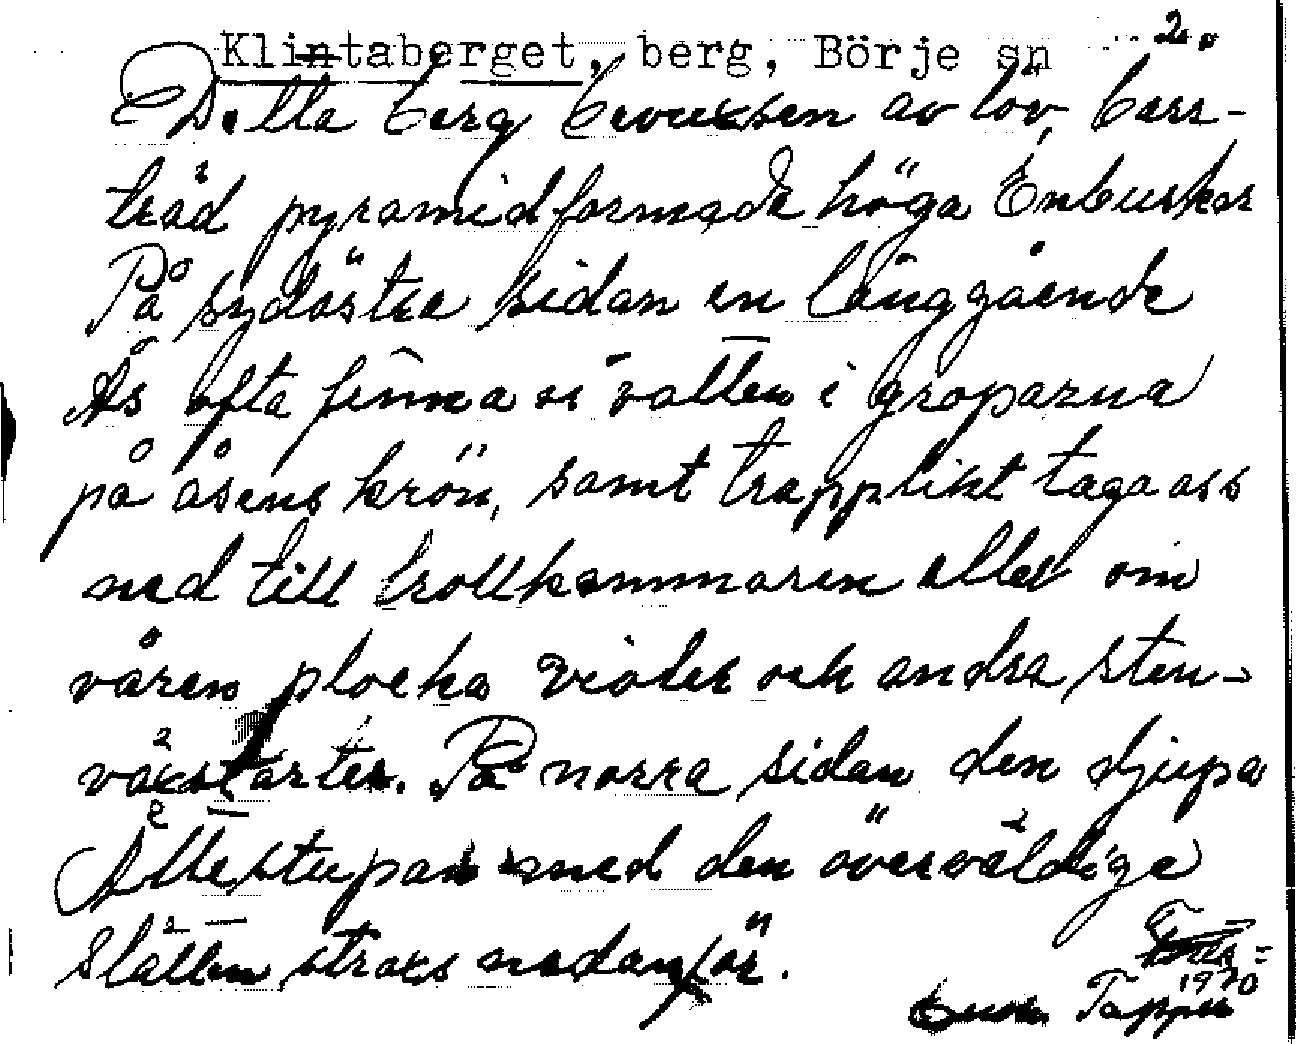 Klintaberget, berg, Börje sn 2.
Detta berg bevuxsen av löv, barr-
träd pyramidformade höga Enbuskar
På sydöstra sidan en långgående
Ås ofta finna vi vatten i groparna
på åsens krön, samt trapplikt taga oss
ned till trollkammaren eller om
våren plocka violer och andra sten-
växtarter. På norra sidan den djupa
Ättestupan med den överväldige
Slätten straks nedanför.
1970
Tapper